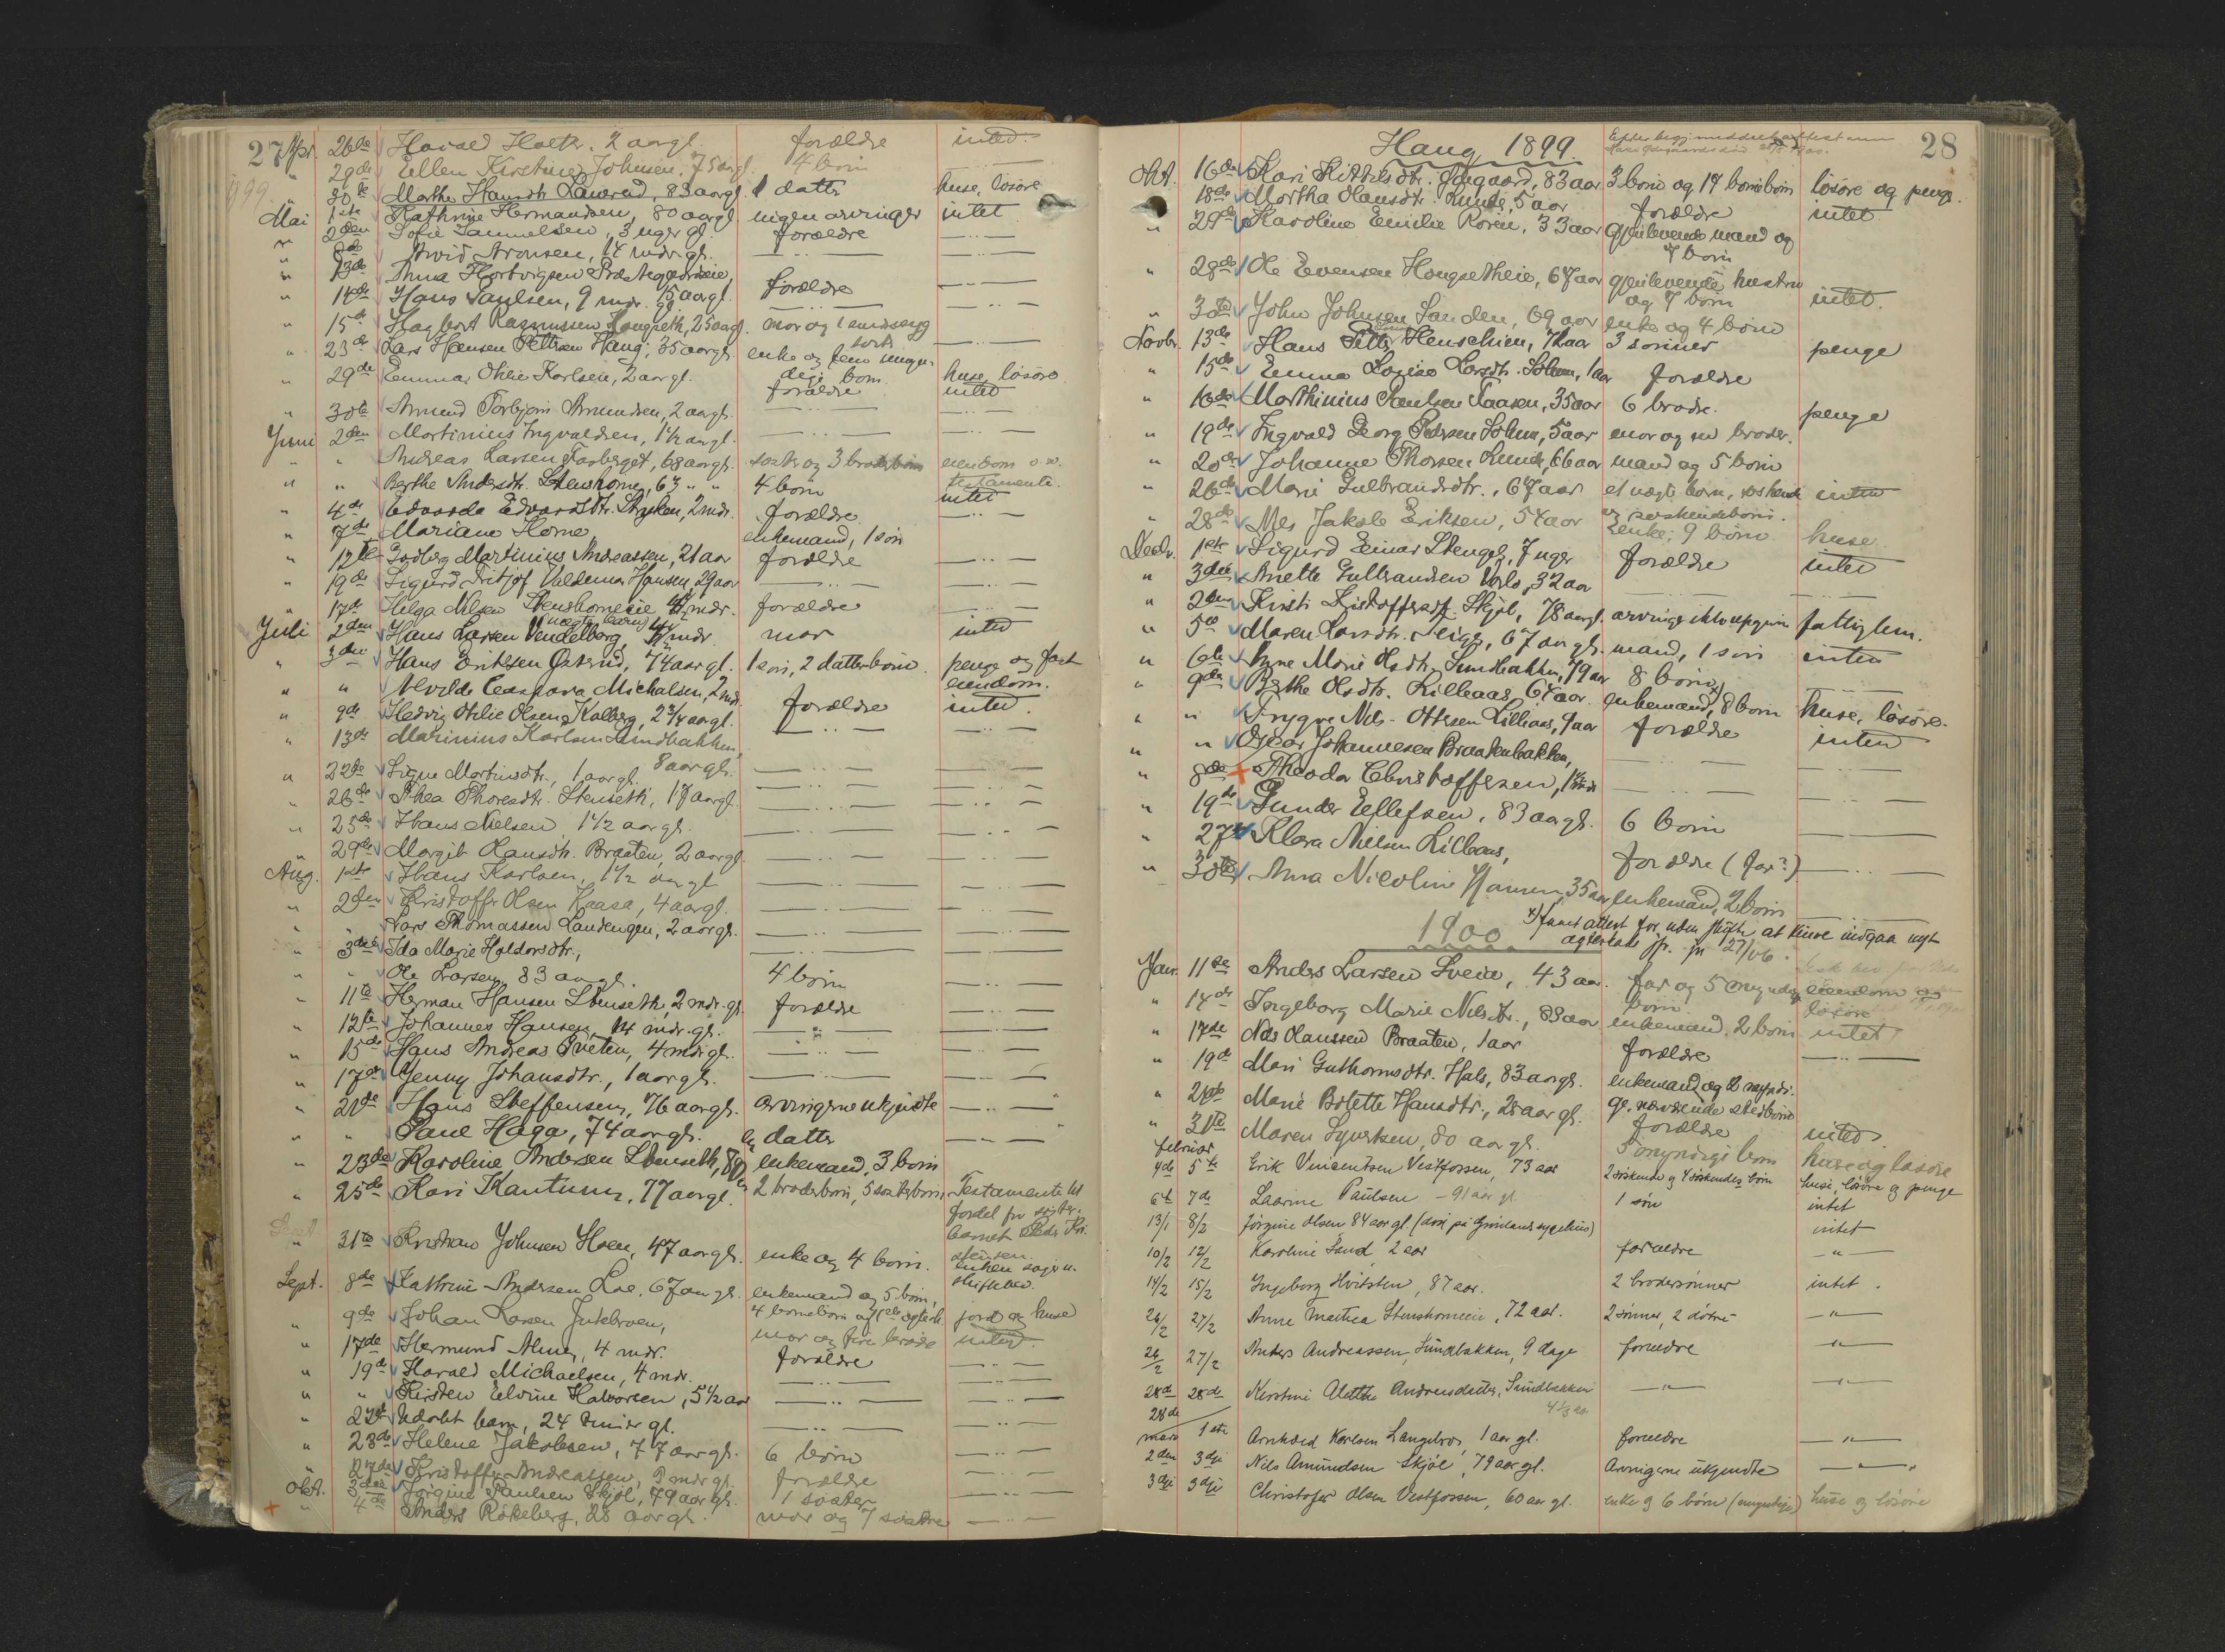 27 Apr. 26de Harald Holth, 2 aar gl. forældre intet
1899 " 29de Ellen Kirstine Johnsen, 75 aar gl. 4 børn
" 30te Marthe Hansdtr. Laverud, 83 aar gl. 1 datter huse, løsøre
Mai 1ste Kathrine Hermandsen, 80 aar gl. ingen arvinger intet
" 2den Sofie Samuelsen, 3 uger gl. forældre — " —
" 8de Arvid Aronsen, 14 mdr. gl. — " — — " —
" 13de Anna Hartvigsen
" 14de Hans Paulsen, 9 mdr. 15 aar gl. forældre — " —
" 15de Hagbart Rasmussen Hougseth, 25 aar gl. mor og 1 sindssyg søster
" 23de Lars Hansen Pettersen Haug, 35 aar gl. enke og fem umyndige børn huse, løsøre
" 29de Emma Otilie Karlsen, 2 aar gl. forældre intet
" 30te Amund Torbjørn Amundsen, 2 aar gl. — " — — " —
Juni 2den Martinius Ingvaldsen, 1 1/2 aar gl. — " — — " —
" " Andreas Larsen Fosberget, 68 aar gl. søster og 3 broderbørn eiendom
" " Berthe Andersdtr. Stenshorne, 63 " " 4 børn testamente
" 4de Edvarda Edvardsdtr. Stryken, 2 mdr. forældre intet
" 7de Mariane Horne enkemand, 1 søn — " —
" 12te Godberg Martinius Andreassen, 21 aar forældre — " —
" 19de Sigurd Fritjof Valdemar Hansen, 29 aar — " — — " —
" 17de Helga Nilsen Stenshorneie mdr. forældre — " —
Juli 2den Hans Larsen Vendelborg, mdr. mor intet
" 3die Hans Eriksen Østerud, 74 aar gl. 1 søn, 2 datterbørn penge og fast eiendom.
" " Alvilde Caspara Michalsen, 2 mdr. forældre intet
" 9de Hedvig Otilie Olsen Kolberg, 2 3/4 aar gl. — " — — " —
" 13de Marinius Karlsen Sundbakken, 8 aar gl.
" 22de Signe Martinsdtr., 1 aar gl. — " — — " —
" 26de Thea Thoresdtr. Stenseth, 17 aar gl. — " — — " —
" 25de Hans Nielsen, 1 1/2 aar gl. — " — — " —
" 29de Margit Hansdtr. Braaten, 2 aar gl. — " — — " —
Aug. 1ste Hans Karlsen, 1 1/2 aar gl. — " — — " —
" 2den Kristoffer Olsen Kaasa, 4 aar gl. — " — — " —
" " Lars Thomassen Landengen, 2 aar gl. — " — — " —
" 3die Ida Marie Haldorsdtr., — " — — " —
" " Ole Larsen, 83 aar gl. 4 børn — " —
" 11te Herman Hansen Stenseth, 2 mdr. gl. forældre — " —
" 12te Johannes Hansen, 14 mdr. gl. — " — — " —
" 15de Hans Andreas Sveten, 4 mdr. gl. — " — — " —
" 17de Jenny Johansdtr., 1 aar gl. — " — — " —
" 21de Hans Steffensen, 76 aar gl. arvingerne ukjendte — " —
" " Paul Haga, 74 aar gl. en datter — " —
" 23de Karoline Andersen Stenseth, enkemand, 3 børn
" 25de Kari Kantum, 77 aar gl. 2 broderbørn, 5 søsterbørn Testamente til fordel for søsterbarnet Peder Kristensen.
" 31te Kristian Johnsen Hoen, 47 aar gl. enke og 4 børn. enken skiftebev.
Sept. 8de Kathrine Andersen Loe, 67 aar gl. enkemand og 5 børn, 4 børnebørn af 1ste ægtesk. jord og huse
" 9de Johan Larsen mor og fire brødre intet
" 17de Hermund Alme, 4 mdr. forældre — " —
" 19de Harald Michaelsen, 4 mdr. — " — — " —
" " Kirsten Elvine Halvorsen, 5 1/2 aar — " — — " —
" 22de Udøbt barn, 24 timer gl. — " — — " —
" 23de Helene Jakobsen, 77 aar gl. 6 børn — " —
" 27de Kristoffer Andreassen, 9 mdr. gl. forældre — " —
Okt. 3die Jørgine Paulsen Skjøl, 79 aar gl. 1 søster — " —
" 4de Anders Røkeberg, 28 aar gl. mor og 7 søstre — " —
Haug 1899. 28
Okt. 16de Kari Kittelsdtr. Øvgaard, 83 aar 3 børn og 17 børnebørn løsøre og penge.
" 18de Martha Hansdtr. Lunde, 5 aar forældre intet
" 29de Karoline Emilie Rosen, 33 aar gjenlevende mand og 7 børn
" 28de Ole Evensen Hougsetheie, 67 aar gjenlevende hustru og 7 børn intet.
" 30te John Johnsen Sanden, 69 aar enke og 4 børn
Novbr. 13de Hans Petter Henschien, 72 aar 3 sønner penge
" 15de Emma Lovise Larsdtr. Solum, 1 aar forældre
" 16de Marthinius Paulsen Taasen, 35 aar 6 brødre. penge
" 19de Ingvald Georg Pedersen Solum, 5 aar mor og en broder.
" 20de Johanne Thorsen Lunde, 66 aar mand og 5 børn
" 26de Marie Gulbrandsdtr., 67 aar et uægte barn, søskende og søskendebørn. intet
" 28de Nils Jakob Eriksen, 54 aar enke, 9 børn huse.
Decbr. 1ste Sigurd Einar Stengel, 7 uger forældre intet
" 3die Anette Gulbrandsen Vols, 32 aar — " — — " —
" 2den Kirsti Kristoffersdtr. Skjøl, 78 aar gl. arvinge ikke opgiven fattiglem.
" 5te Maren Larsdtr. Teige, 67 aar gl. mand, 1 søn intet
" 6te Anne Marie Olsdtr. Sundbakken, 79 aar 8 børn — " —
" 9de Berthe Olsdtr. Lilleaas, 64 aar. enkemand, 8 børn huse, løsøre.
" " Trygve Nils-Ottesen Lilleaas, 9 aar forældre intet
" " Oscar Johannesen Braatenbakken, — " — — " —
" 8de Theodor Christoffersen, — " — — " —
" 19de Gunder Ellefsen, 83 aar gl. 6 børn — " —
" 27de Klara Nielsen Lilleaas, forældre (far?) — " —
" 30te Anna Nicoline Hansen, 35 aar enkemand, 2 børn
1900
x) fanet attest for uden skifte at kunne indgaa nyt ægteskab jfr. jn 27/06.
Jan. 11te Anders Larsen Sveia, 43 aar. far og 5 umyndige børn eiendom og løsøre
" 14de Ingeborg Marie Nilsdtr., 83 aar enkemand, 2 børn intet
" 17de Nils Hanssen Braaten, 1 aar forældre — " —
" 19de Mari Guthormsdtr. Hals, 83 aar gl. enkemand og 2 myndige, nærværende stedbørn
" 21de Marie Bolette Hansdtr., 28 aar gl. forældre intet
" 31te Maren Syvertsen, 80 aar gl. 5 myndige børn huse og løsøre
februar
4de 5te Erik Vincentsen Vestfossen, 73 aar 2 søskende og 4 søskendes børn huse, løsøre og penge
6te 7de Laarine Paulsen - 91 aar gl. 1 søn intet
13/1 8/2 Jørgine Olsen 84 aar gl. (død på Grimlands sygehus) intet
10/2 12/2 Karoline Sand, 2 aar forældre — " —
14/2 15/2 Ingeborg Hvitsten, 87 aar. 2 brodersønner intet.
26/2 27/2 Anne Mathea Stenshorneie, 72 aar. 2 sønner, 2 døtre — " —
26/2 27/2 Anders Andreassen Sundbakken, 9 dage forældre — " —
28de 28de Kirstine Alethe Andreasdatter, Sundbakken 4 1/3 aar — " — — " —
28de
mars 1ste Arnhold Karlsen Langebro, 1 aar gl. forældre — " —
2den 3dje Nils Amundsen Skjøl, 79 aar gl. Arvingerne ukjendte — " —
3dje 3dje Christofer Olsen Vestfossen, 60 aar gl. enke og 6 børn (myndige) huse og løsøre